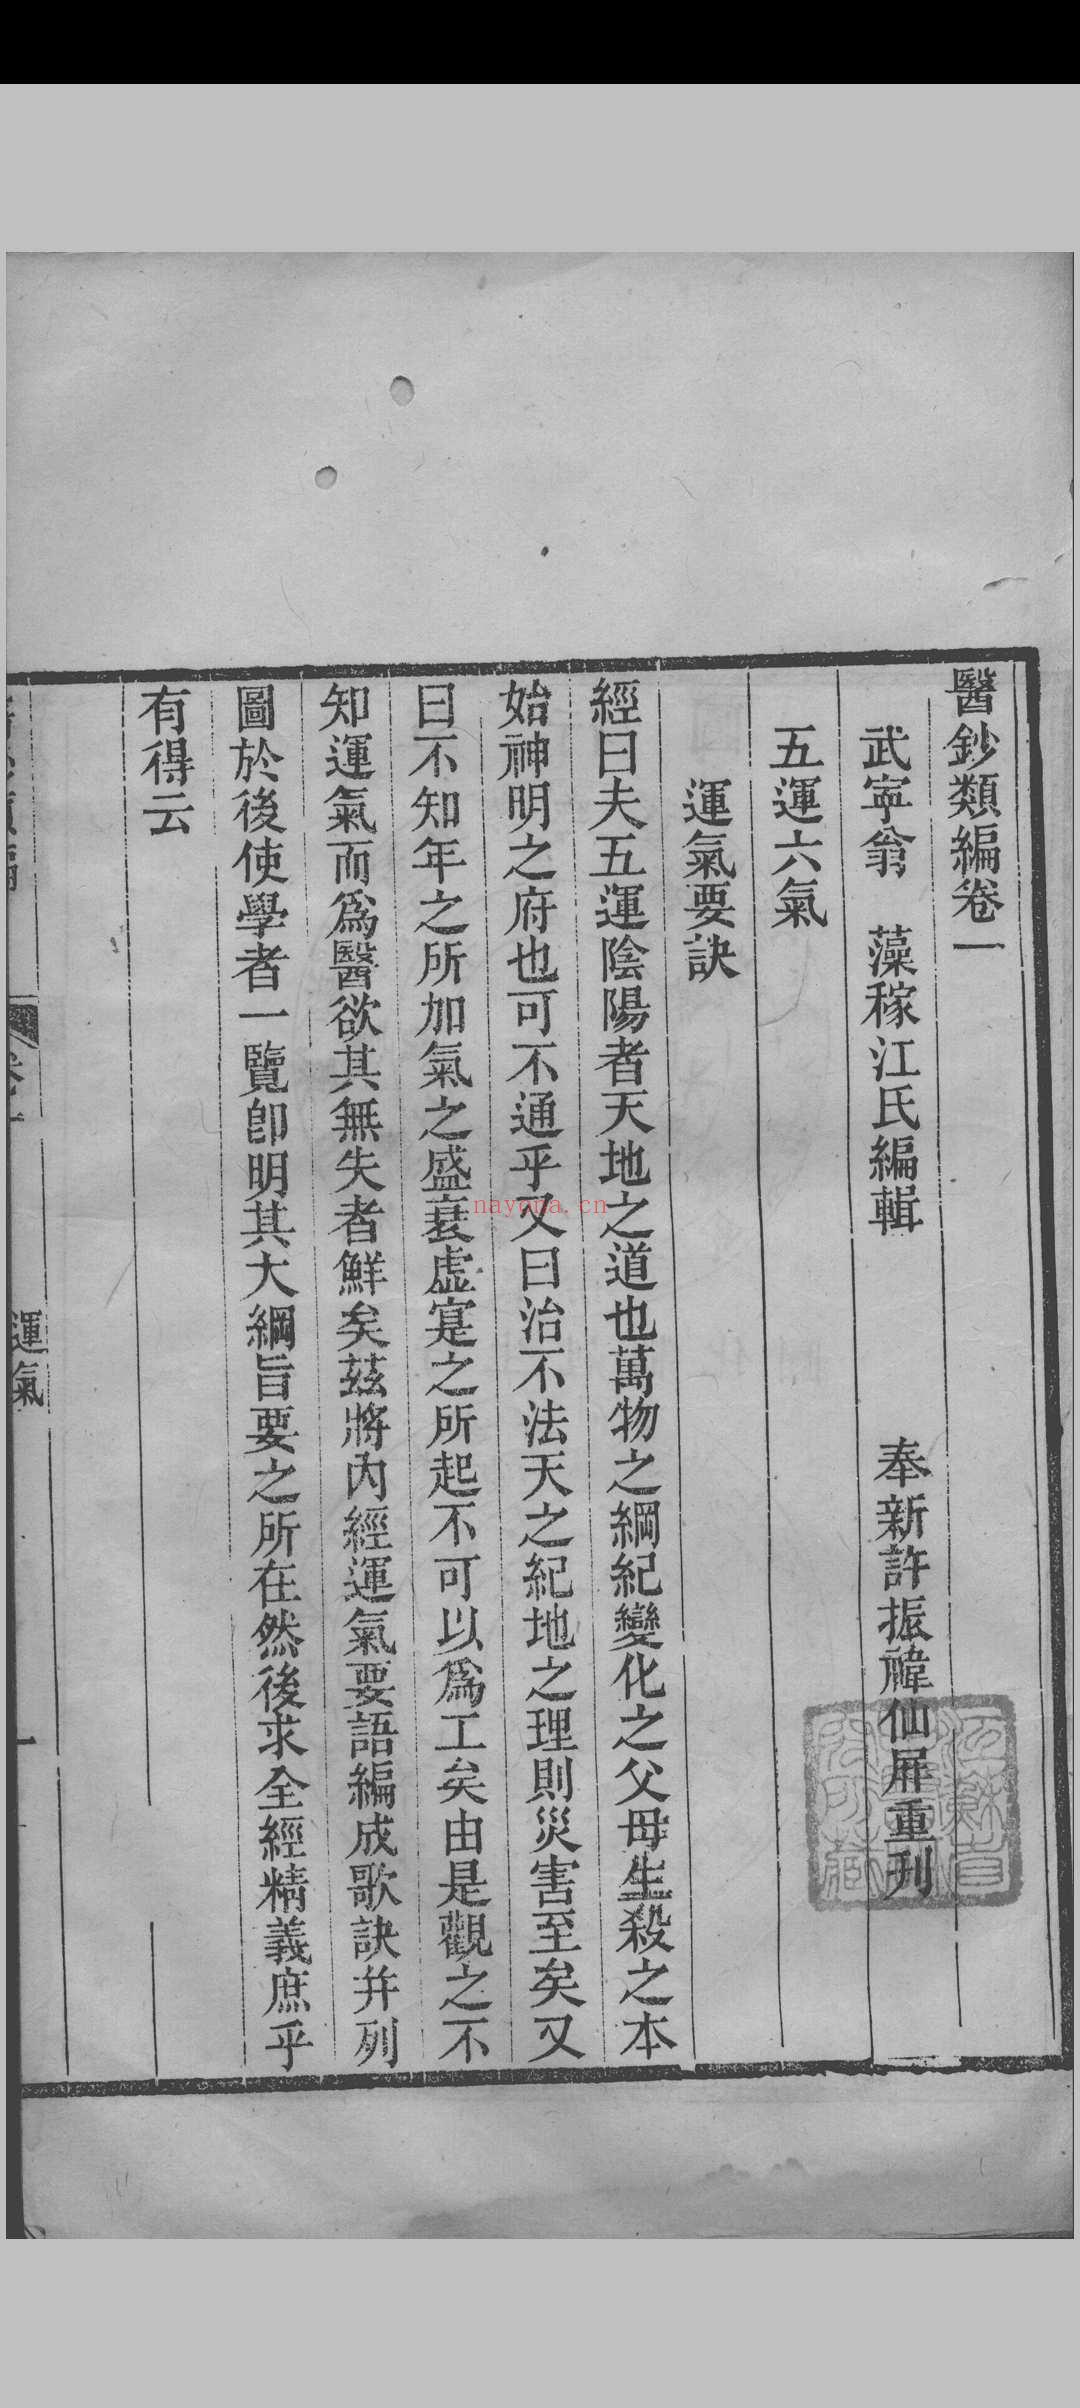 醫鈔類編卷一
武寧翁　藻稼江氏編輯　奉新許振褘仙屛重刋
五運六氣
運氣要訣
經曰夫五運陰陽者天地之道也萬物之綱紀變化之父母生殺之本
始神明之府也可不通乎又曰治不法天之紀地之理則災害至矣又
曰不知年之所加氣之盛衰虛寔之所起不可以爲工矣由是觀之不
知運氣而爲醫欲其無失者鮮矣茲將內經運氣要語編成歌訣幷列
圖於後使學者一覽卽明其大綱旨要之所在然後求全經精義庶乎
有得云
運氣
nayona.cn